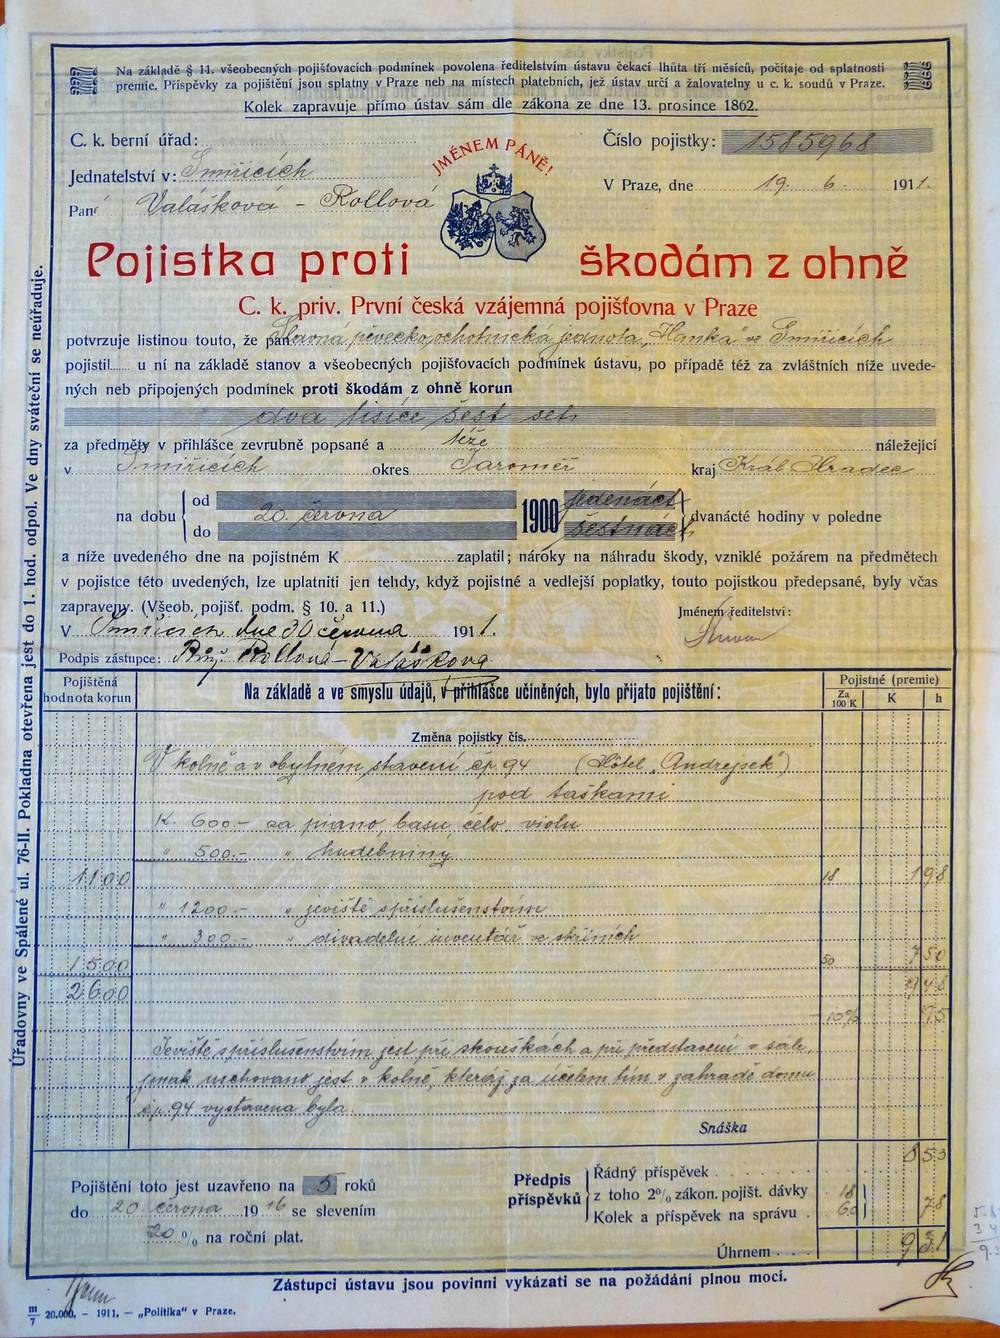 Na základě § 11. všeobecných pojišťovacích podmínek povolena ředitelstvím ústavu čekací lhůta tří měsíců, počítaje od splatnosti
premie. Příspěvky za pojištění jsou splatny v Praze neb na místech platebních, jež ústav určí a žalovatelny u c. k. soudů v Praze.
Kolek zapravuje přímo ústav sám dle zákona ze dne 13. prosince 1862.
C. k. berní úřad:
Číslo pojistky: 1585968
JMÉNEM PÁNĚ!
Jednatelství v: Smiřicích
V Praze, dne 19. 6. 1911.
Paní Valášková - Rollová
Pojistka proti škodám z ohně
C. k. priv. První česká vzájemná pojišťovna v Praze
potvrzuje listinou touto, že pan Slavná pěvecko ochotnická jednota „Hanka" ve Smiřicích
pojistil u ní na základě stanov a všeobecných pojišťovacích podmínek ústavu, po případě též za zvláštních níže uvede-
ných neb připojených podmínek proti škodám z ohně korun
dva tisíce šest set
za předměty v přihlášce zevrubně popsané a téže náležející
v Smiřicích okres Jaroměř kraj Král Hradec
na dobu od do 20. června 1900 jedenáct šestnáct dvanácté hodiny v poledne
a níže uvedeného dne na pojistném K zaplatil; nároky na náhradu škody, vzniklé požárem na předmětech
v pojistce této uvedených, lze uplatniti jen tehdy, když pojistné a vedlejší poplatky, touto pojistkou předepsané, byly včas
zapraveny. (Všeob. pojišť. podm. § 10. a 11.)
Jménem ředitelství:
V Smiřicích dne 30 června 1911.
Podpis zástupce: Rollová - Valášková
Úřadovny ve Spálené ul. 76-II. Pokladna otevřena jest do 1. hod. odpol. Ve dny sváteční se neúřaduje.
Pojištěná hodnota korun
Na základě a ve smyslu údajů, v přihlášce učiněných, bylo přijato pojištění:
Pojistné (premie)
Za 100 K K h
Změna pojistky čís.
V kolně a v obytném stavení čp. 94 (Hôtel „Andrejsek")
pod taškami
K. 600.- za piano, basu, celo, violu
" 500.- " hudebniny
1100 18 198
" 1200.- " jeviště s příslušenstvím
" 300.- " divadelní inventář ve skříních
1500 50 750
2600 948
- 10% 95
Jeviště s příslušenstvím jest při zkouškách a při představení v sále,
jinak uschováno jest v kolně, kteráž za účelem tím v zahradě domu
čp. 94 vystavena byla.
Snáška
853
Pojištění toto jest uzavřeno na 5 roků
do 20. června 1916 se slevením
20% na roční plat.
Předpis příspěvků
Řádný příspěvek
z toho 2% zákon. pojišt. dávky 18
Kolek a příspěvek na správu 60 78
Úhrnem 931
Zástupci ústavu jsou povinni vykázati se na požádání plnou mocí.
m/7 20.000. - 1911. — „Politika" v Praze.